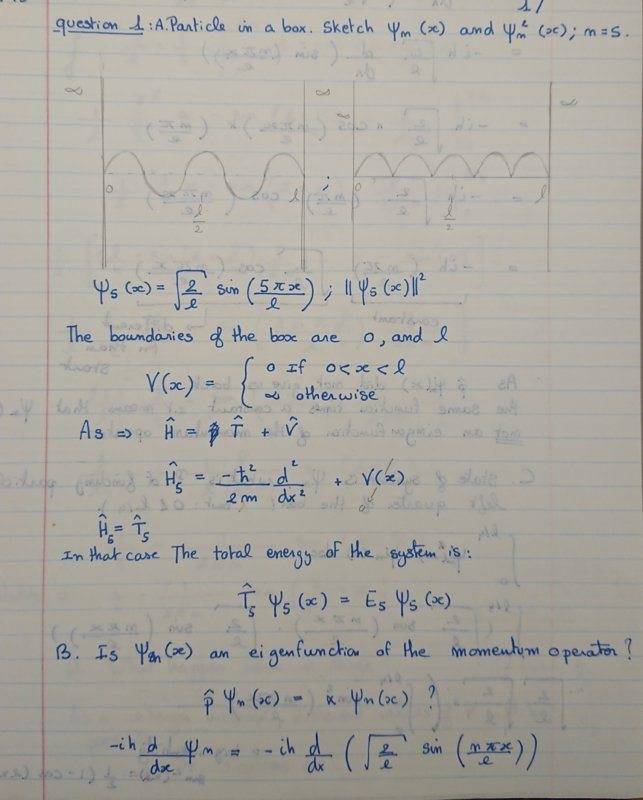 question 1: A. Particle in a box. Sketch Ψn (x) and Ψn² (x); n=5.
∞ ∞ ∞ ∞
0 l/2 l ; 0 l/2 l
Ψ5 (x) = √(2/l) sin (5πx/l) ; ||Ψ5 (x)||²
The boundaries of the box are 0, and l
V(x) = { 0 If 0 < x < l
∞ otherwise
As => Ĥ = T̂ + V̂
Ĥ5 = -ħ²/2m d²/dx² + V(x) 0
Ĥ5 = T̂5
In that case The total energy of the system is:
T̂5 Ψ5 (x) = E5 Ψ5 (x)
B. Is Ψn (x) an eigenfunction of the momentum operator?
p̂ Ψn (x) = α Ψn (x) ?
-iħ d/dx Ψn = -iħ d/dx (√(2/l) sin (nπx/l))